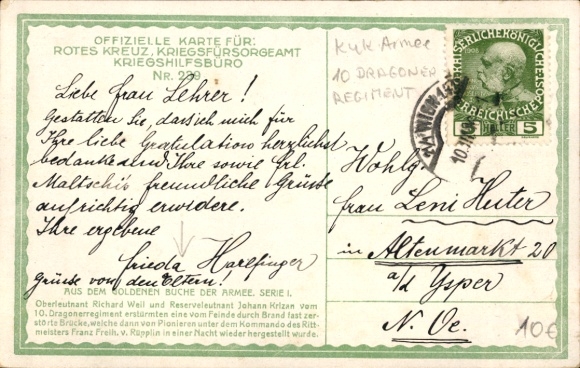 OFFIZIELLE KARTE FÜR:
ROTES KREUZ, KRIEGSFÜRSORGEAMT
KRIEGSHILFSBÜRO
NR. 239
K u k Armee
10 DRAGONER
REGIMENT
5 HELLER 5
Liebe Frau Lehrer!
Gestatten Sie, dass ich mich für
Ihre liebe Gratulation herzlichst
bedanke und Ihre sowie Frl.
Maltschi's freundliche Grüsse
aufrichtig erwidere.
Ihre ergebene
Frieda Harlfinger
Grüsse von den Eltern!
Wohlg
Frau Leni Huter
in Altenmarkt 20
a/d Ysper
N. Oe.
10€
AUS DEM GOLDENEN BUCHE DER ARMEE, SERIE I.
Oberleutnant Richard Weil und Reserveleutnant Johann Krizan vom
10. Dragonerregiment erstürmten eine vom Feinde durch Brand fast zer-
störte Brücke, welche dann von Pionieren unter dem Kommando des Ritt-
meisters Franz Freih. v. Rüpplin in einer Nacht wieder hergestellt wurde.